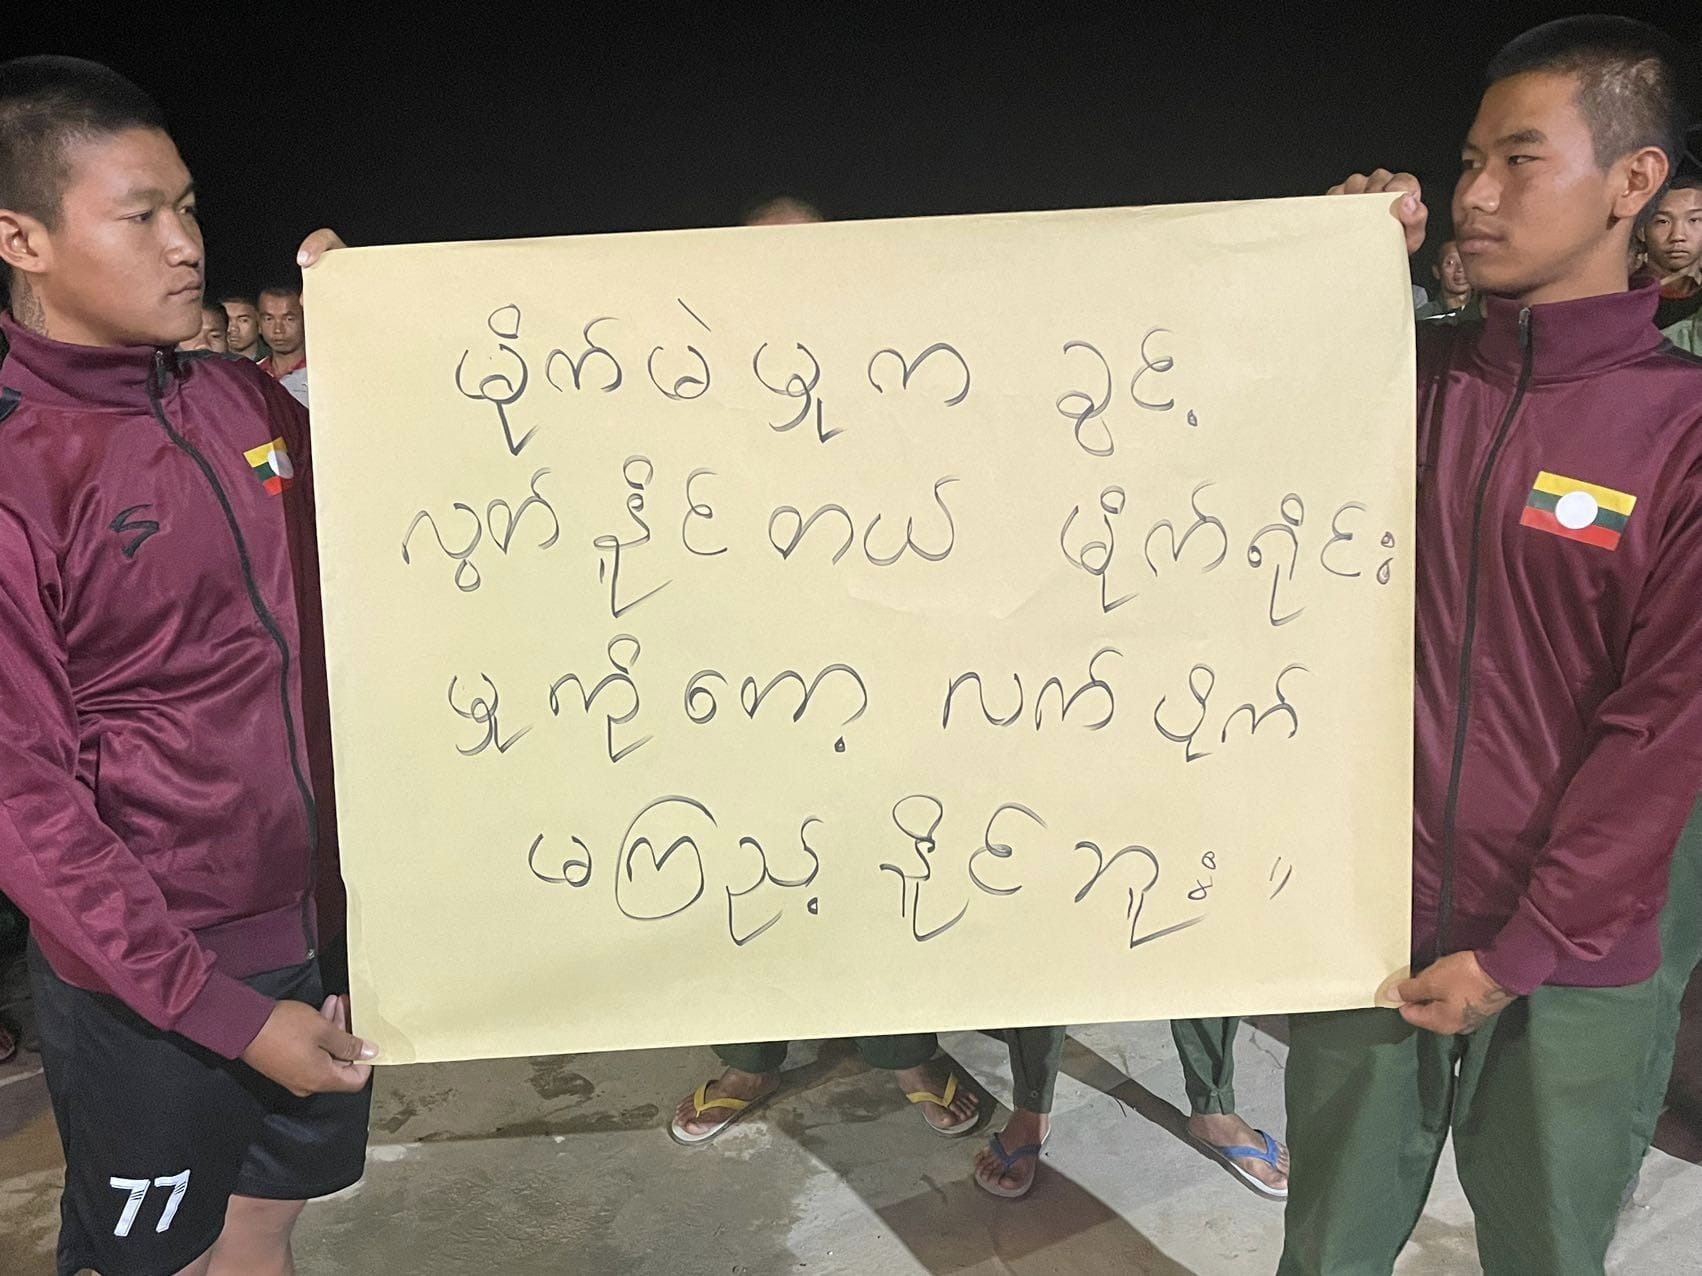 မိုက်မဲမှုက ခွင့်
လွှတ်နိုင်တယ် မိုက်ရိုင်း
မှုကိုတော့ လက်ပိုက်
မကြည့်နိုင်ဘူး။
77